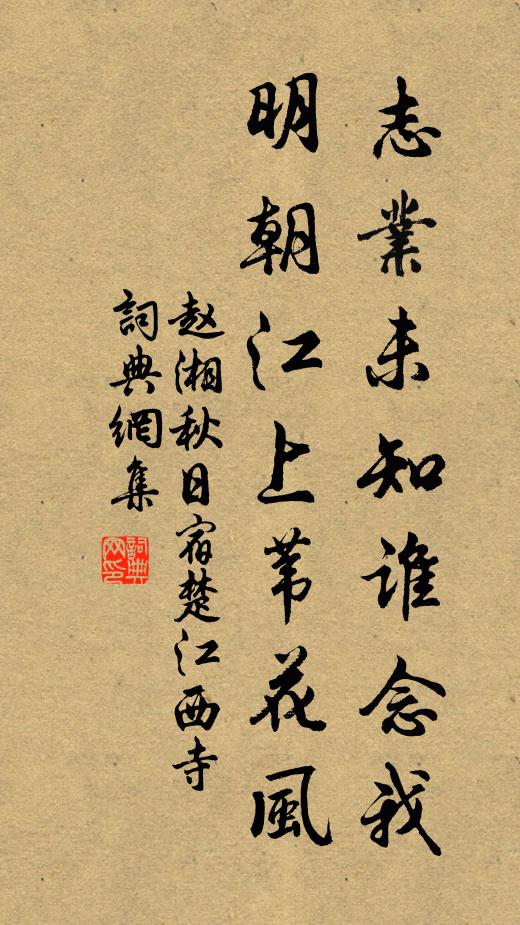 志業未知谁念我
明朝江上苇花風
赵湘秋日宿楚江西寺
詞典網集
詞典网印